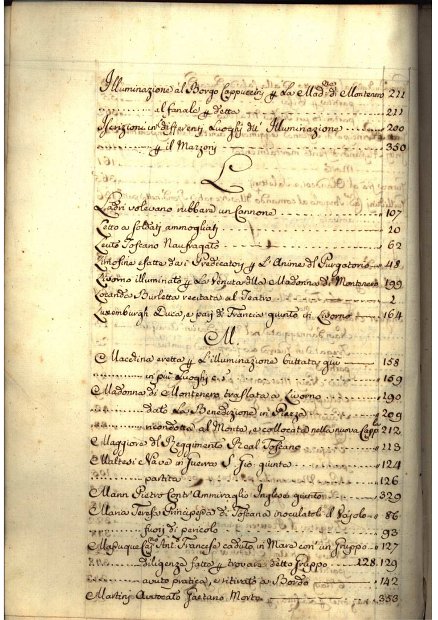 Illuminazione al Borgo Cappuccinj p La Mad:na di Montenero 211
al fanale p detta 211
Iscrizioni in differentj Luoghi di Illuminazione 200
p il Marzonj 350
L
Ladri volevano rubbare un Cannone 107
Letto a Soldatj ammogliatj 20
Leuto Toscano Naufragato 62
Limosine p L'Anime del Purgatorio 48
Livorno illuminato p La Venuta della Madonna di Montenero 199
Locanda Burletta recitata al Teatro 2
Luxemburgh Duca, e parj di Francia giunto in Livorno 164
M.
Macchina eretta p L'illuminazione buttata giù 158
in più Luoghi 159
Madonna di Montenero traslata a Livorno 190
dato La Benedizione in Piazza 209
ricondotta al Monte, e collocata nella nuova Capp 212
Maggiore del Reggimento Real Toscano 113
Maltesi Nave in Guerra S. Gio: giunta 124
partita 126
Mann Pietro Cont: Ammiraglio Inglese giunto 329
Maria Teresa Principessa di Toscana inoculatolj il Vajolo 86
fuori di pericolo 93
Francese caduto in Mare con un Gruppo 127
diligenza fatte p trovare detto Gruppo 128.129
avuto pratica, e ritirato a Bordo 142
Martinj Avvocato Gaetano Morto 353